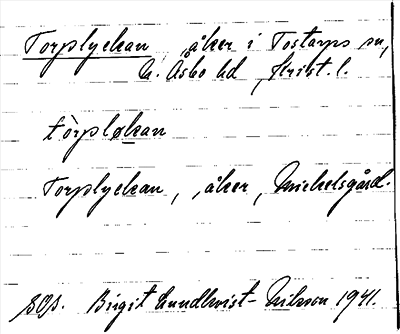 Torplyckan, åker i Tostarps sn,
N. Åsbo hd, Krist. l.
tòrpløkan
Torplyckan, åker, Michelsgård.
SOS. Birgit Lundkvist-Nilsson 1941.